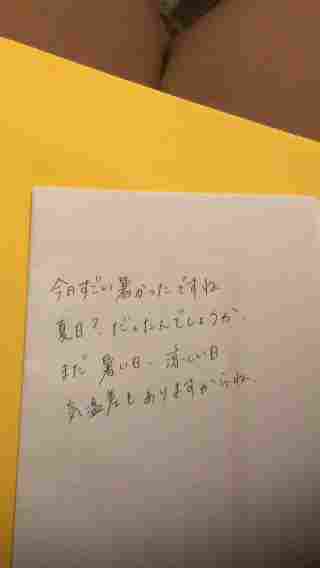 今日すごい暑かったですね
夏日?だったんでしょうか.
まだ 暑い日、涼しい日
気温差もありますからね.